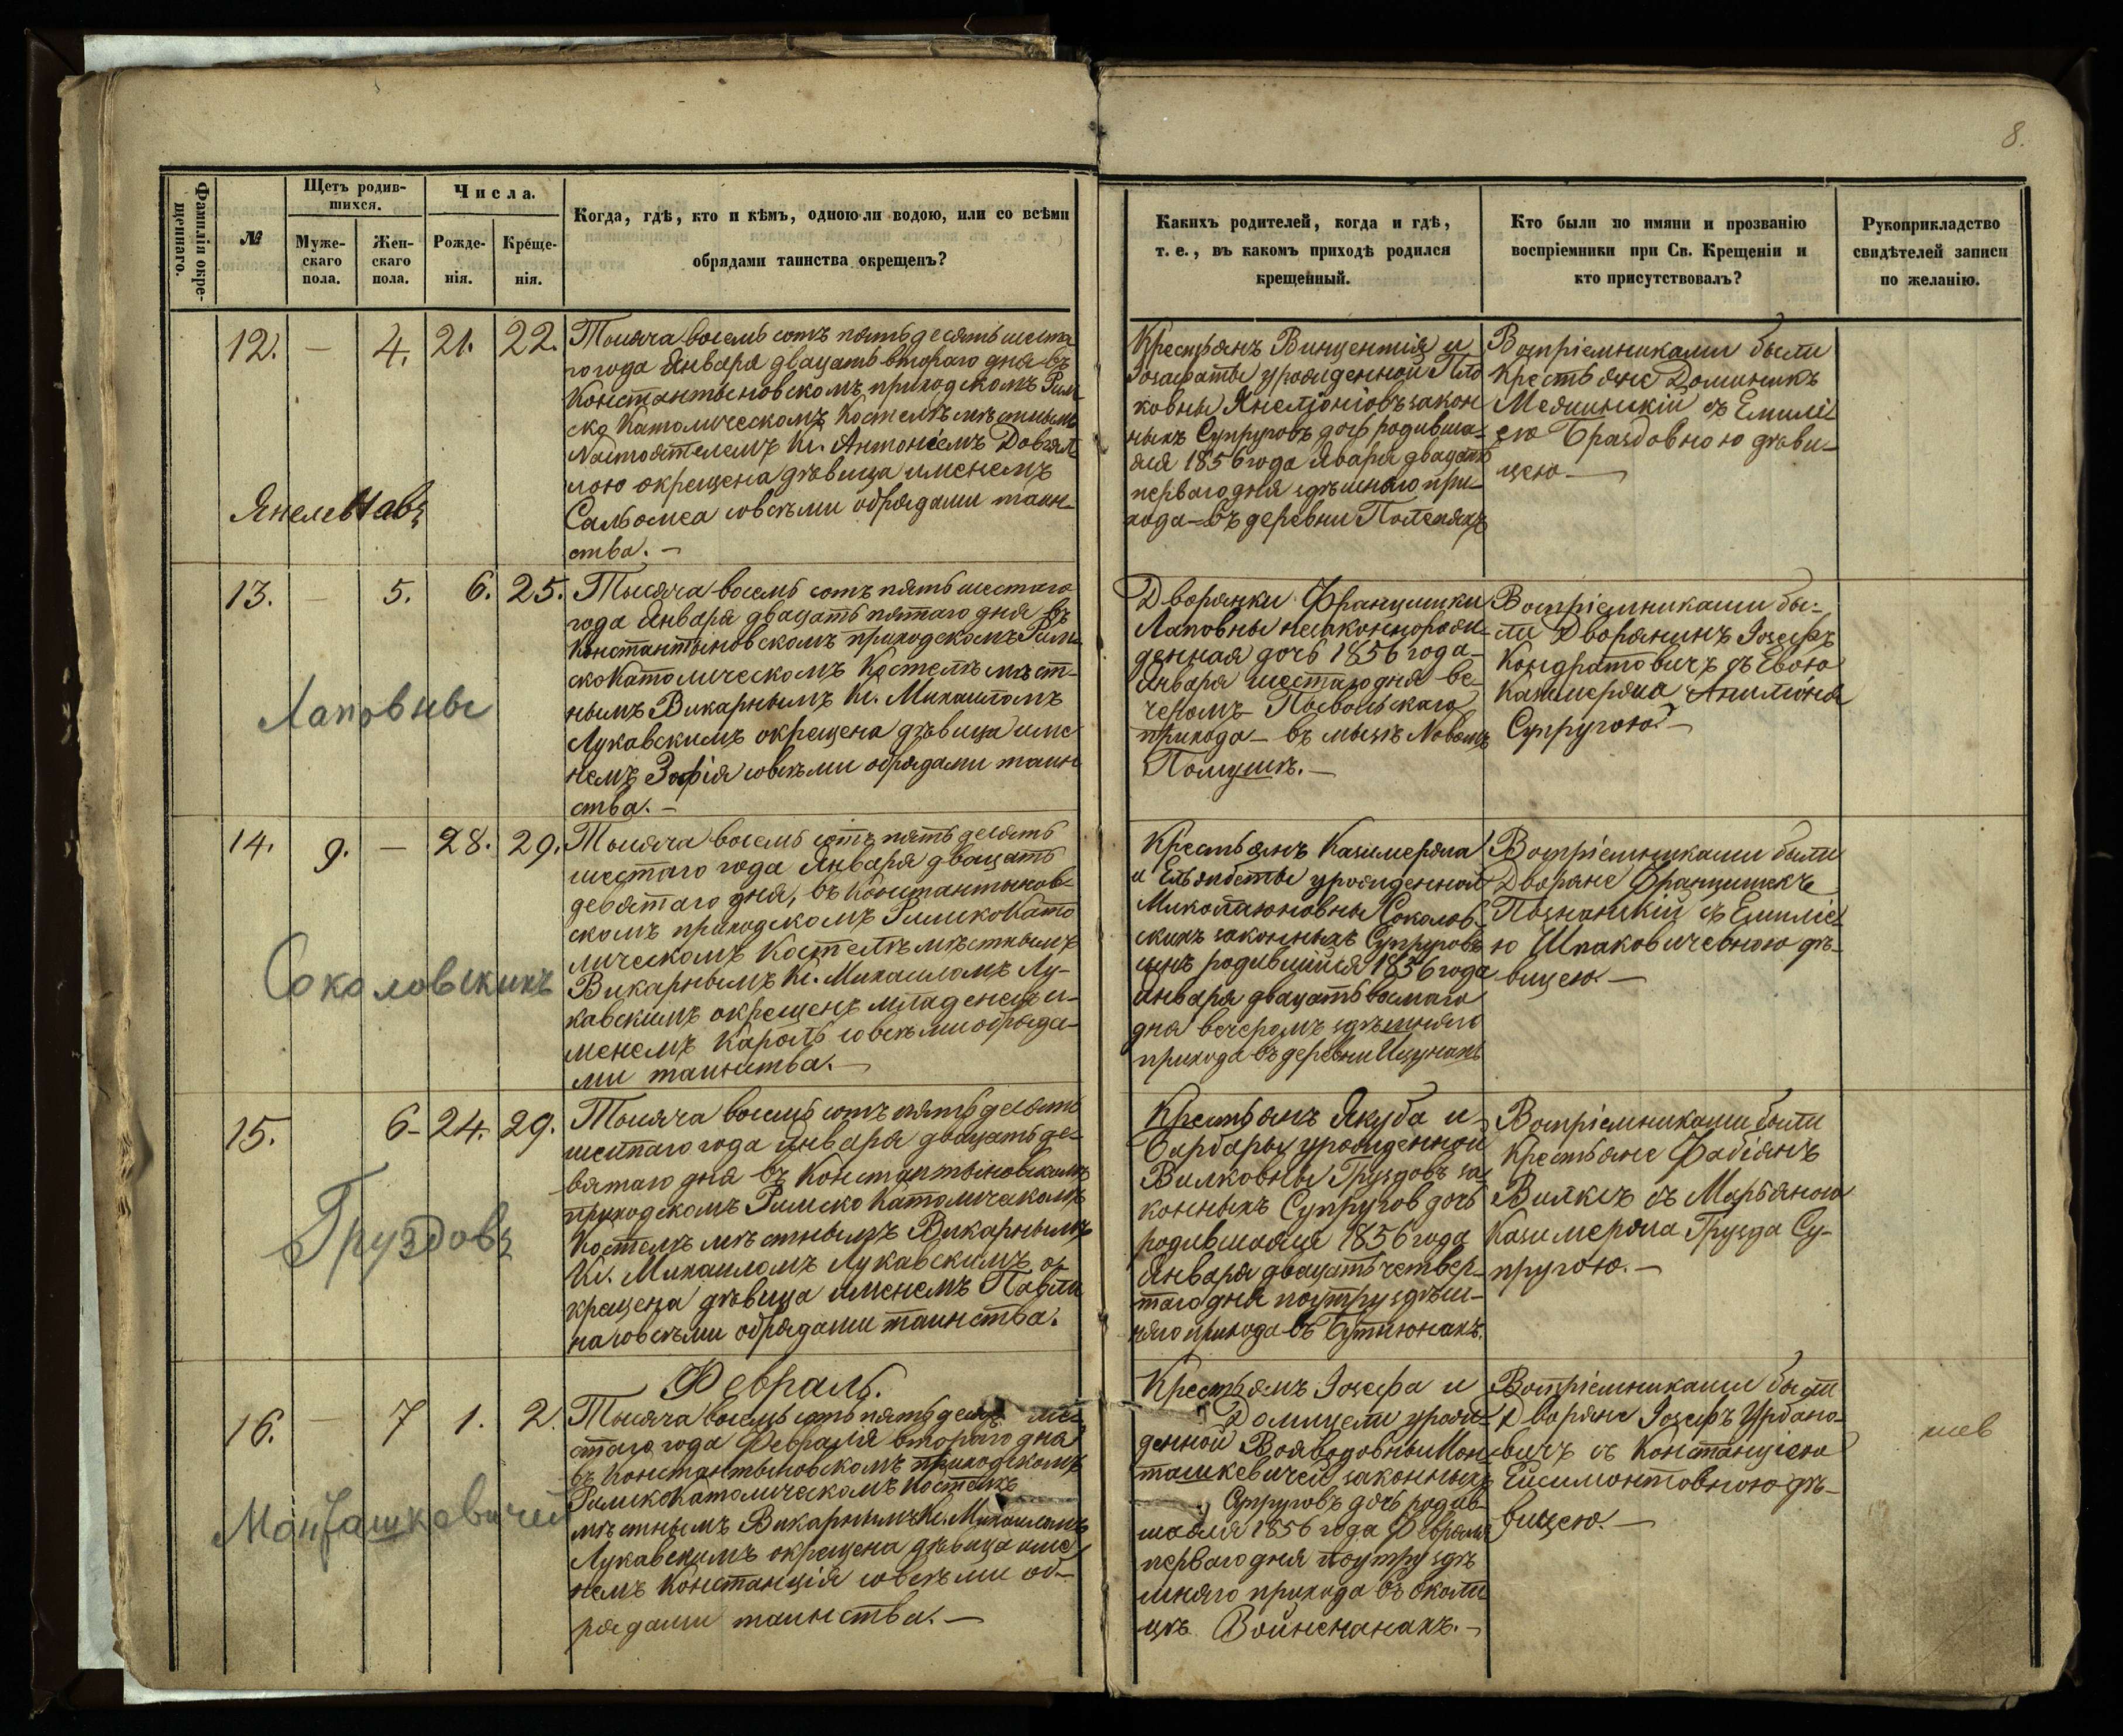 8.
Фамилія окре-
щеннаго.
№
Щетъ родив-
шихся.
Муже-
скаго
пола.
Жен-
скаго
пола.
Числа.
Рожде-
нія.
Креще-
нія.
Когда, гдѣ, кто и кѣмъ, одноюли водою, или со всѣми
обрядами таинства окрещенъ?
Какихъ родителей, когда и гдѣ,
т. е., въ какомъ приходѣ родился
крещенный.
Кто были по имяни и прозванію
воспріемники при Св. Крещеніи и
кто присутствовалъ?
Рукоприкладство
свидѣтелей записи
по желанію.
12. — 4. 21. 22.
Тысяча восемь сотъ пятьдесятъ шеста
го года Января двацать втораго дня въ
Константыновскомъ приходскомъ Рим-
ско Католическомъ Костелѣ мѣстнымъ
Настоятелемъ Кс. Антоніемъ Довгял
лою окрещена дѣвица именемъ
Сальомеа совсѣми обрядами таин-
ства. —
Крестьянъ Винцентія и
Іозафаты урожденной
ковны закон
ныхъ Супруговъ дочь родивша-
яся 1856 года Январа двацать
перваго дня здѣшняго при-
хода — въ деревни
Воспріемниками были
Крестьяне Доминикъ
съ Емиліе
ею Браздовною дѣви-
цею. —
13. — 5. 6. 25.
Тысяча восемь сотъ пять шестаго
года Января двацать пятаго дня въ
Константыновскомъ приходскомъ Рим-
ско Католическомъ Костелѣ мѣст-
нымъ Викарнымъ Кс. Михаиломъ
Лукавскимъ окрещена дѣвица име
немъ Зофія совсѣми обрядами таин
ства. —
Лаповны
Дворянки Францишки
Лаповны незаконнорож-
денная дочь 1856 года —
Января шестаго дня ве-
черомъ —
прихода — въ мызѣ Новомъ
Помушѣ. —
Воспріемниками бы-
ли Дворянинъ Іозефъ
Кондратовичъ съ Евою
Казимержа
Супругою. —
14. 9. — 28. 29.
Тысяча восемь сотъ пять десятъ
шестаго года Января двацать
девятаго дня, въ Константынов-
скомъ приходскомъ Римско Като
лическомъ Костелѣ мѣстнымъ
Викарнымъ Кс. Михаиломъ Лу-
кавскимъ окрещенъ младенецъ и-
менемъ Кароль совсѣми обряда-
ми таинства. —
Соколовскихъ
Крестьянъ Казимержа
и Ельжбеты урожденной
Соколов-
скихъ законныхъ Супруговъ
сынъ родившийся 1856 года
Января двацать восмаго
дня вечеромъ здѣшняго
прихода въ деревни
Воспріемниками были
Дворяне Францишекъ
Познанскій съ Емиліе
ю Шпаковичевною дѣ-
вицею. —
15. 6 - 24. 29.
Тысяча восемь сотъ пять десятъ
шестаго года Января двацать де-
вятаго дня въ Константыновскомъ
приходскомъ Римско Католическомъ
Костелѣ мѣстнымъ Викарнымъ
Кс. Михаиломъ Лукавскимъ о-
крещена дѣвица именемъ Павли
на совсѣми обрядами таинства.
Груздовъ
Крестьянъ Якуба и
Барбары урожденной
Вилковны Груздовъ за-
конныхъ Супругов дочь
родившаяся 1856 года
Января двацать четвер-
таго дня поутру здѣш-
няго прихода въ
Воспріемниками были
Крестьяне Фабіянъ
Вилкъ съ Марьяною
Казимержа Грузда Су-
пругою. —
Февраль.
16. — 7 1. 2.
Тысяча восемь сотъ пять деся ше-
стаго года Февраля втораго дня
въ Константыновскомъ приходскомъ
Римско Католическомъ Костелѣ
мѣстнымъ Викарнымъ Кс. Михаиломъ
Лукавскимъ окрещена дѣвица име
немъ Констанція совсѣми об-
рядами таинства. —
Крестьянъ Іозефа и
Домицели урож-
денной Вояводовны Мон
ташкевичей законныхъ
Супруговъ дочь родив-
шаяся 1856 года Февраля
перваго дня поутру здѣ
шняго прихода въ околи
цѣ
Воспріемниками были
Дворяне Іозефъ Урбано-
вичъ съ Констанціею
Ейсимонтовною дѣ-
вицею. —